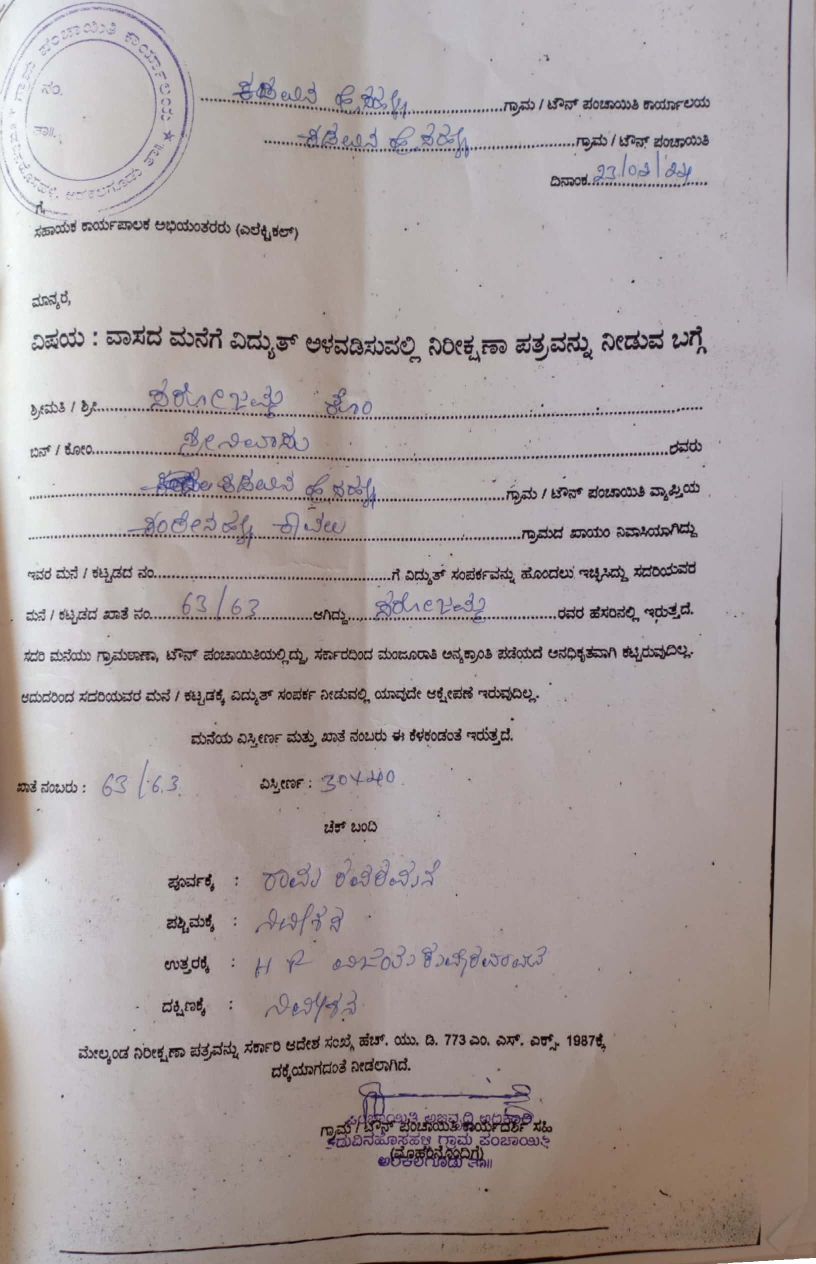 ಗ್ರಾಮ ಪಂಚಾಯಿತಿ ಕಾರ್ಯಾಲಯ ★ ಅರಕಲಗೂಡು ತಾ||
ನಂ.
ತಾ||.
ಗ್ರಾಮ / ಟೌನ್ ಪಂಚಾಯಿತಿ ಕಾರ್ಯಾಲಯ
ಗ್ರಾಮ / ಟೌನ್ ಪಂಚಾಯಿತಿ
ದಿನಾಂಕ
ಗೆ,
ಸಹಾಯಕ ಕಾರ್ಯಪಾಲಕ ಅಭಿಯಂತರರು (ಎಲೆಕ್ಟ್ರಿಕಲ್)
ಮಾನ್ಯರೆ,
ವಿಷಯ : ವಾಸದ ಮನೆಗೆ ವಿದ್ಯುತ್ ಅಳವಡಿಸುವಲ್ಲಿ ನಿರೀಕ್ಷಣಾ ಪತ್ರವನ್ನು ನೀಡುವ ಬಗ್ಗೆ
ಶ್ರೀಮತಿ / ಶ್ರೀ. ಸರೋಜಮ್ಮ ಕೋಂ
ಬಿನ್ / ಕೋಂ. ಶ್ರೀನಿವಾಸ ರವರು
ಗ್ರಾಮ / ಟೌನ್ ಪಂಚಾಯಿತಿ ವ್ಯಾಪ್ತಿಯ
ಗ್ರಾಮದ ಖಾಯಂ ನಿವಾಸಿಯಾಗಿದ್ದು
ಇವರ ಮನೆ / ಕಟ್ಟಡದ ನಂ. ಗೆ ವಿದ್ಯುತ್ ಸಂಪರ್ಕವನ್ನು ಹೊಂದಲು ಇಚ್ಛಿಸಿದ್ದು ಸದರಿಯವರ
ಮನೆ / ಕಟ್ಟಡದ ಖಾತೆ ನಂ. 63/63 ಆಗಿದ್ದು ಸರೋಜಮ್ಮ ರವರ ಹೆಸರಿನಲ್ಲಿ ಇರುತ್ತದೆ.
ಸದರಿ ಮನೆಯು ಗ್ರಾಮಠಾಣಾ, ಟೌನ್ ಪಂಚಾಯಿತಿಯಲ್ಲಿದ್ದು, ಸರ್ಕಾರದಿಂದ ಮಂಜೂರಾತಿ ಅನ್ಯಕ್ರಾಂತಿ ಪಡೆಯದೆ ಅನಧಿಕೃತವಾಗಿ ಕಟ್ಟಿರುವುದಿಲ್ಲ.
ಆದುದರಿಂದ ಸದರಿಯವರ ಮನೆ / ಕಟ್ಟಡಕ್ಕೆ ವಿದ್ಯುತ್ ಸಂಪರ್ಕ ನೀಡುವಲ್ಲಿ ಯಾವುದೇ ಆಕ್ಷೇಪಣೆ ಇರುವುದಿಲ್ಲ.
ಮನೆಯ ವಿಸ್ತೀರ್ಣ ಮತ್ತು ಖಾತೆ ನಂಬರು ಈ ಕೆಳಕಂಡಂತೆ ಇರುತ್ತದೆ.
ಖಾತೆ ನಂಬರು : 63/63 ವಿಸ್ತೀರ್ಣ : 30x40
ಚೆಕ್ ಬಂದಿ
ಪೂರ್ವಕ್ಕೆ :
ಪಶ್ಚಿಮಕ್ಕೆ : ನಿವೇಶನ
ಉತ್ತರಕ್ಕೆ :
ದಕ್ಷಿಣಕ್ಕೆ : ನಿವೇಶನ
ಮೇಲ್ಕಂಡ ನಿರೀಕ್ಷಣಾ ಪತ್ರವನ್ನು ಸರ್ಕಾರಿ ಆದೇಶ ಸಂಖ್ಯೆ ಹೆಚ್. ಯು. ಡಿ. 773 ಎಂ. ಎಸ್. ಎಕ್ಸ್. 1987ಕ್ಕೆ
ದಕ್ಕೆಯಾಗದಂತೆ ನೀಡಲಾಗಿದೆ.
ಪಂಚಾಯಿತಿ ಅಭಿವೃದ್ಧಿ ಅಧಿಕಾರಿ
ಗ್ರಾಮ / ಟೌನ್ ಪಂಚಾಯಿತಿ ಕಾರ್ಯದರ್ಶಿ ಸಹಿ
ಕಡುವಿನಹೊಸಹಳ್ಳಿ ಗ್ರಾಮ ಪಂಚಾಯಿತಿ
(ಮೊಹರಿನೊಂದಿಗೆ)
ಅರಕಲಗೂಡು ತಾ||